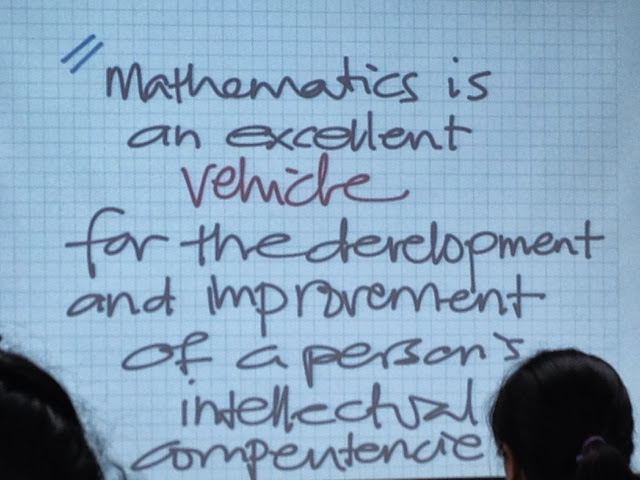 "Mathematics is
an excellent
vehicle
for the development
and improvement
of a person's
intellectual
compentencie